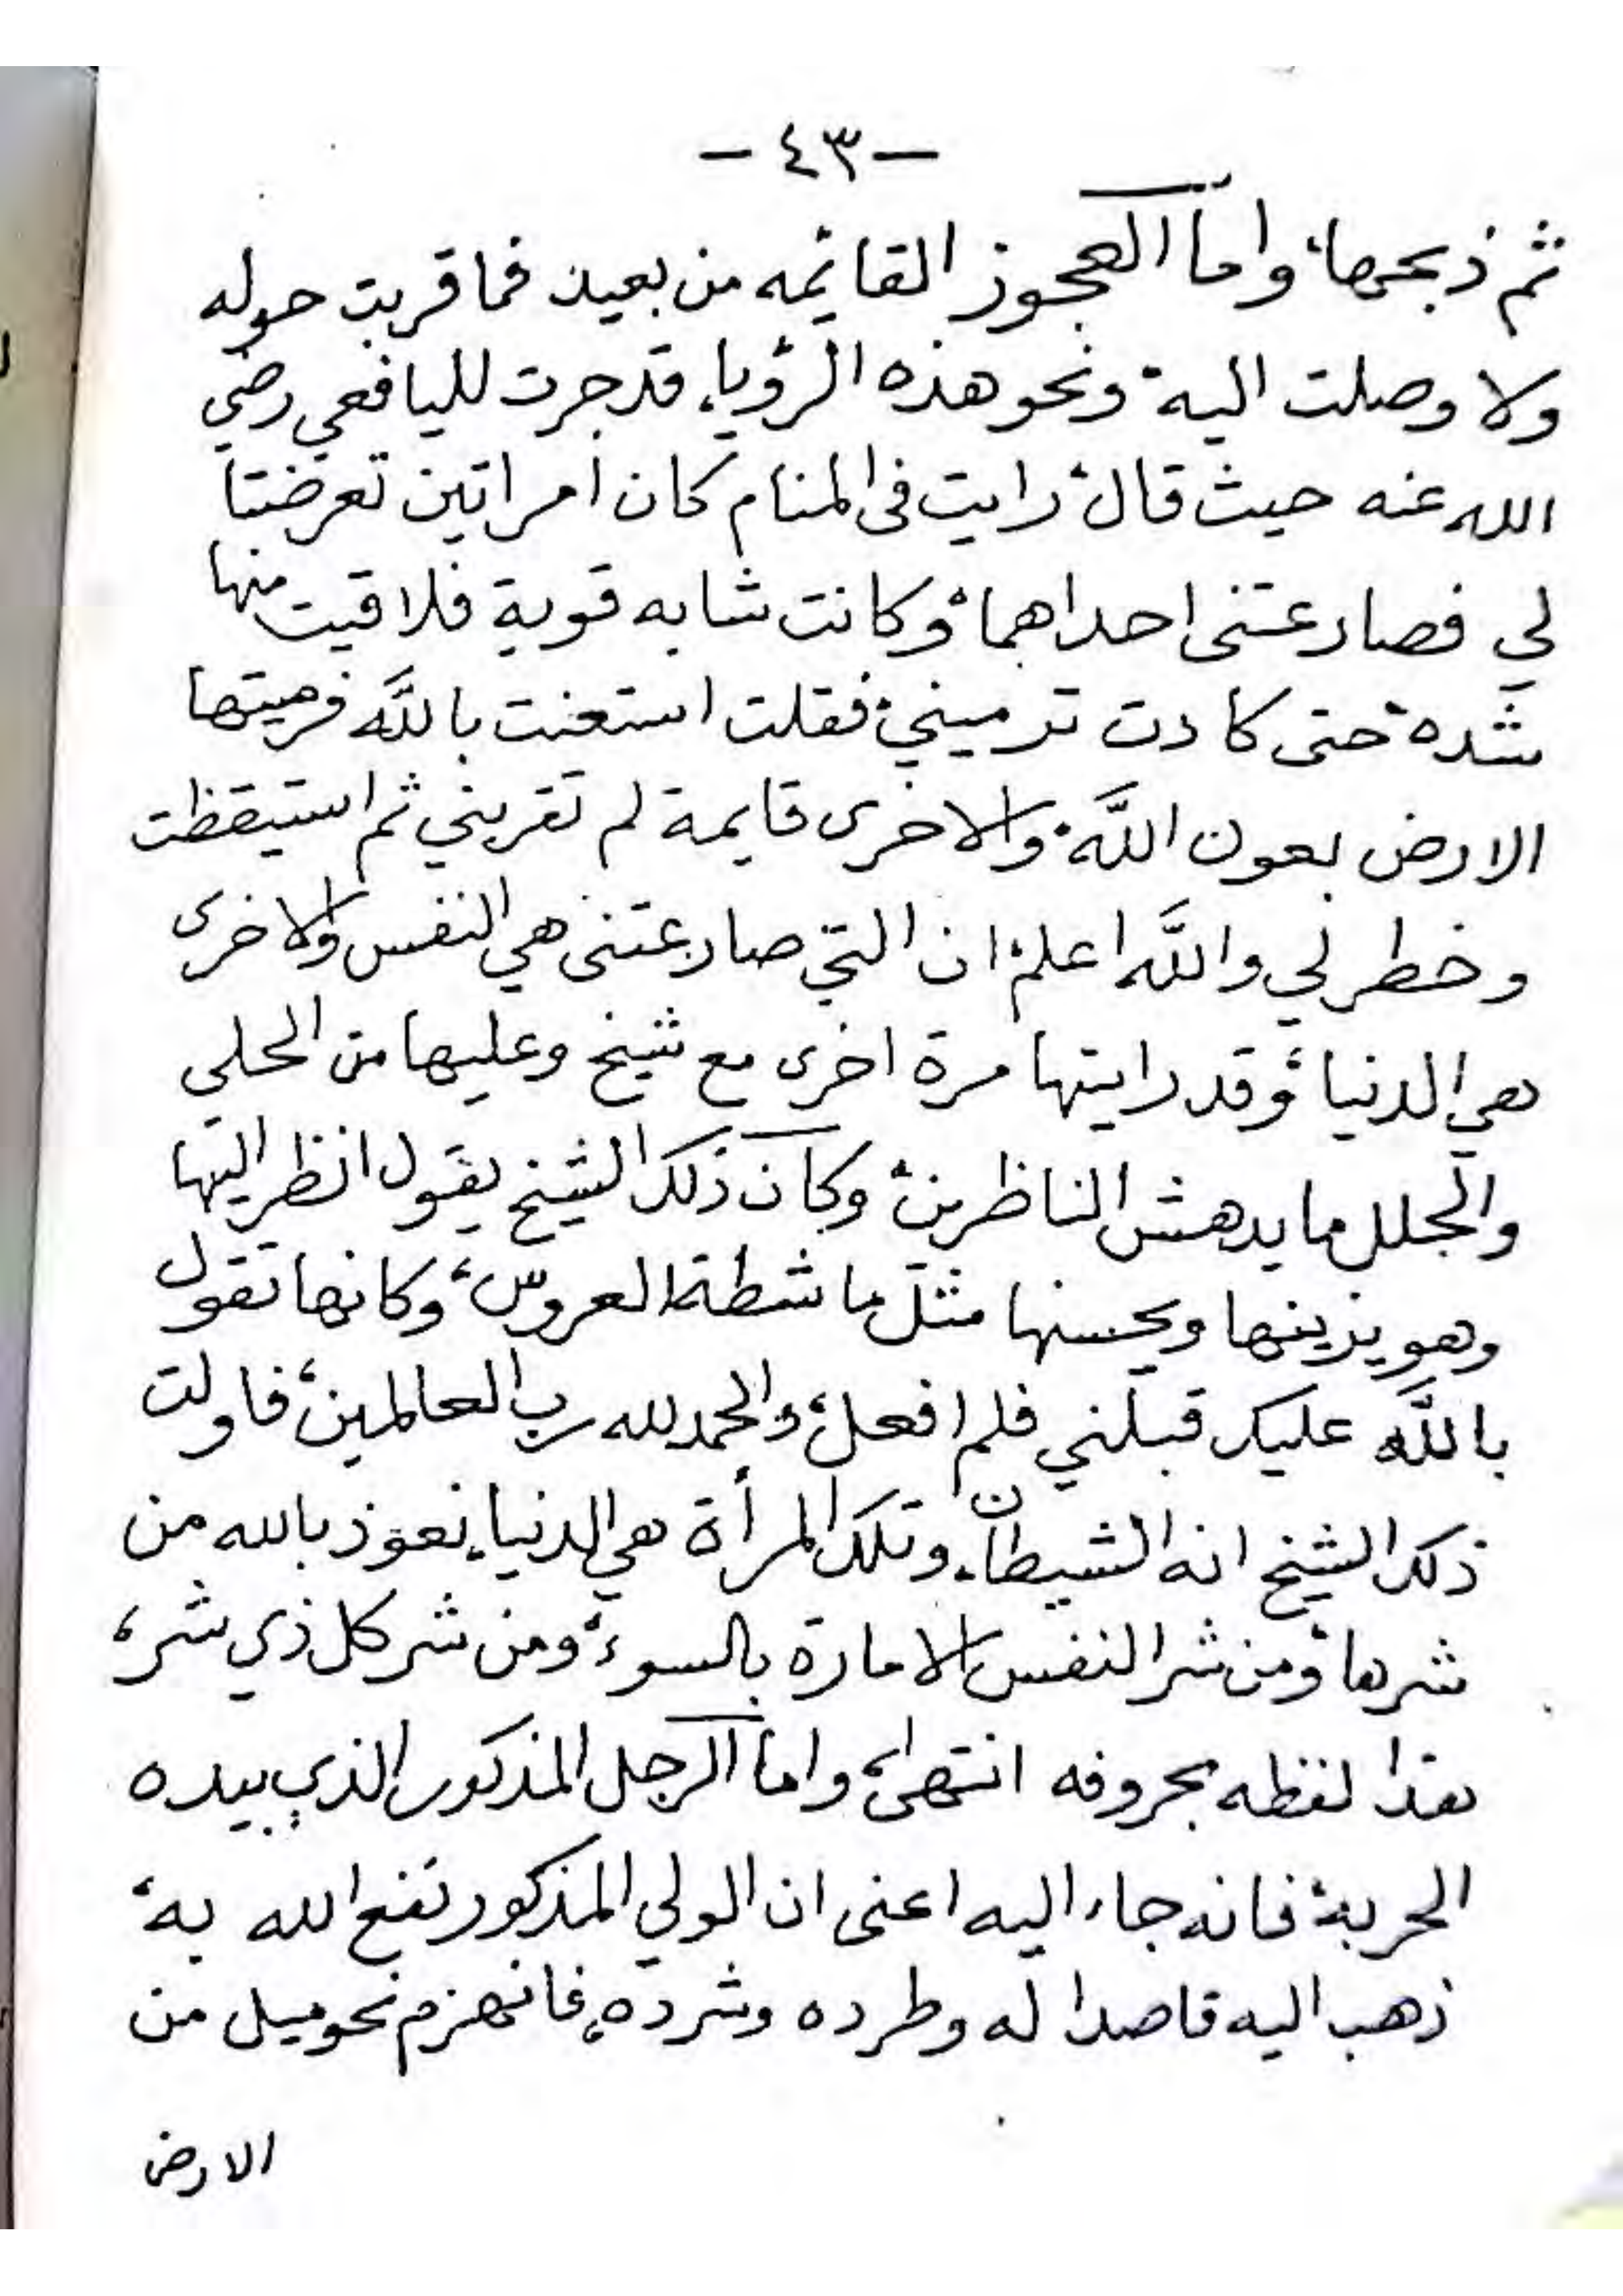 -٤٣-
ثم ذبحها، واما العجوز القائمه من بعيد فما قربت حوله
ولا وصلت اليه، ونحو هذه الرؤيا، قد جرت لليافعي رضي
الله عنه حيث قال، رايت في المنام كان امراتين تعرضتا
لي فصارعتني احداهما، وكانت شابه قوية فلاقيت منها
شده، حتى كادت ترميني، فقلت استعنت بالله فرميتها
الارض بعون الله، والاخرى قايمة لم تقربني ثم استيقظت
وخطر لي والله اعلم، ان التي صارعتني هي النفس والاخرى
هي الدنيا، وقد رايتها مرة اخرى مع شيخ وعليها من الحلي
والحلل ما يدهش الناظرين، وكان ذلك الشيخ يقول انظر اليها
وهو يزينها ويحسنها مثل ماشطة العروس، وكانها تقول
بالله عليك قبلني فلم افعل، والحمد لله رب العالمين، فاولت
ذلك الشيخ انه الشيطان، وتلك المرأة هي الدنيا، نعوذ بالله من
شرها، ومن شر النفس الامارة بالسوء، ومن شر كل ذي شر،
هذا لفظه بحروفه انتهى، واما الرجل المذكور الذي بيده
الحربة، فانه جاء اليه اعنى ان الولي المذكور نفع الله به،
ذهب اليه قاصدا له وطرده وشرده، فانهزم نحو ميل من
الارض